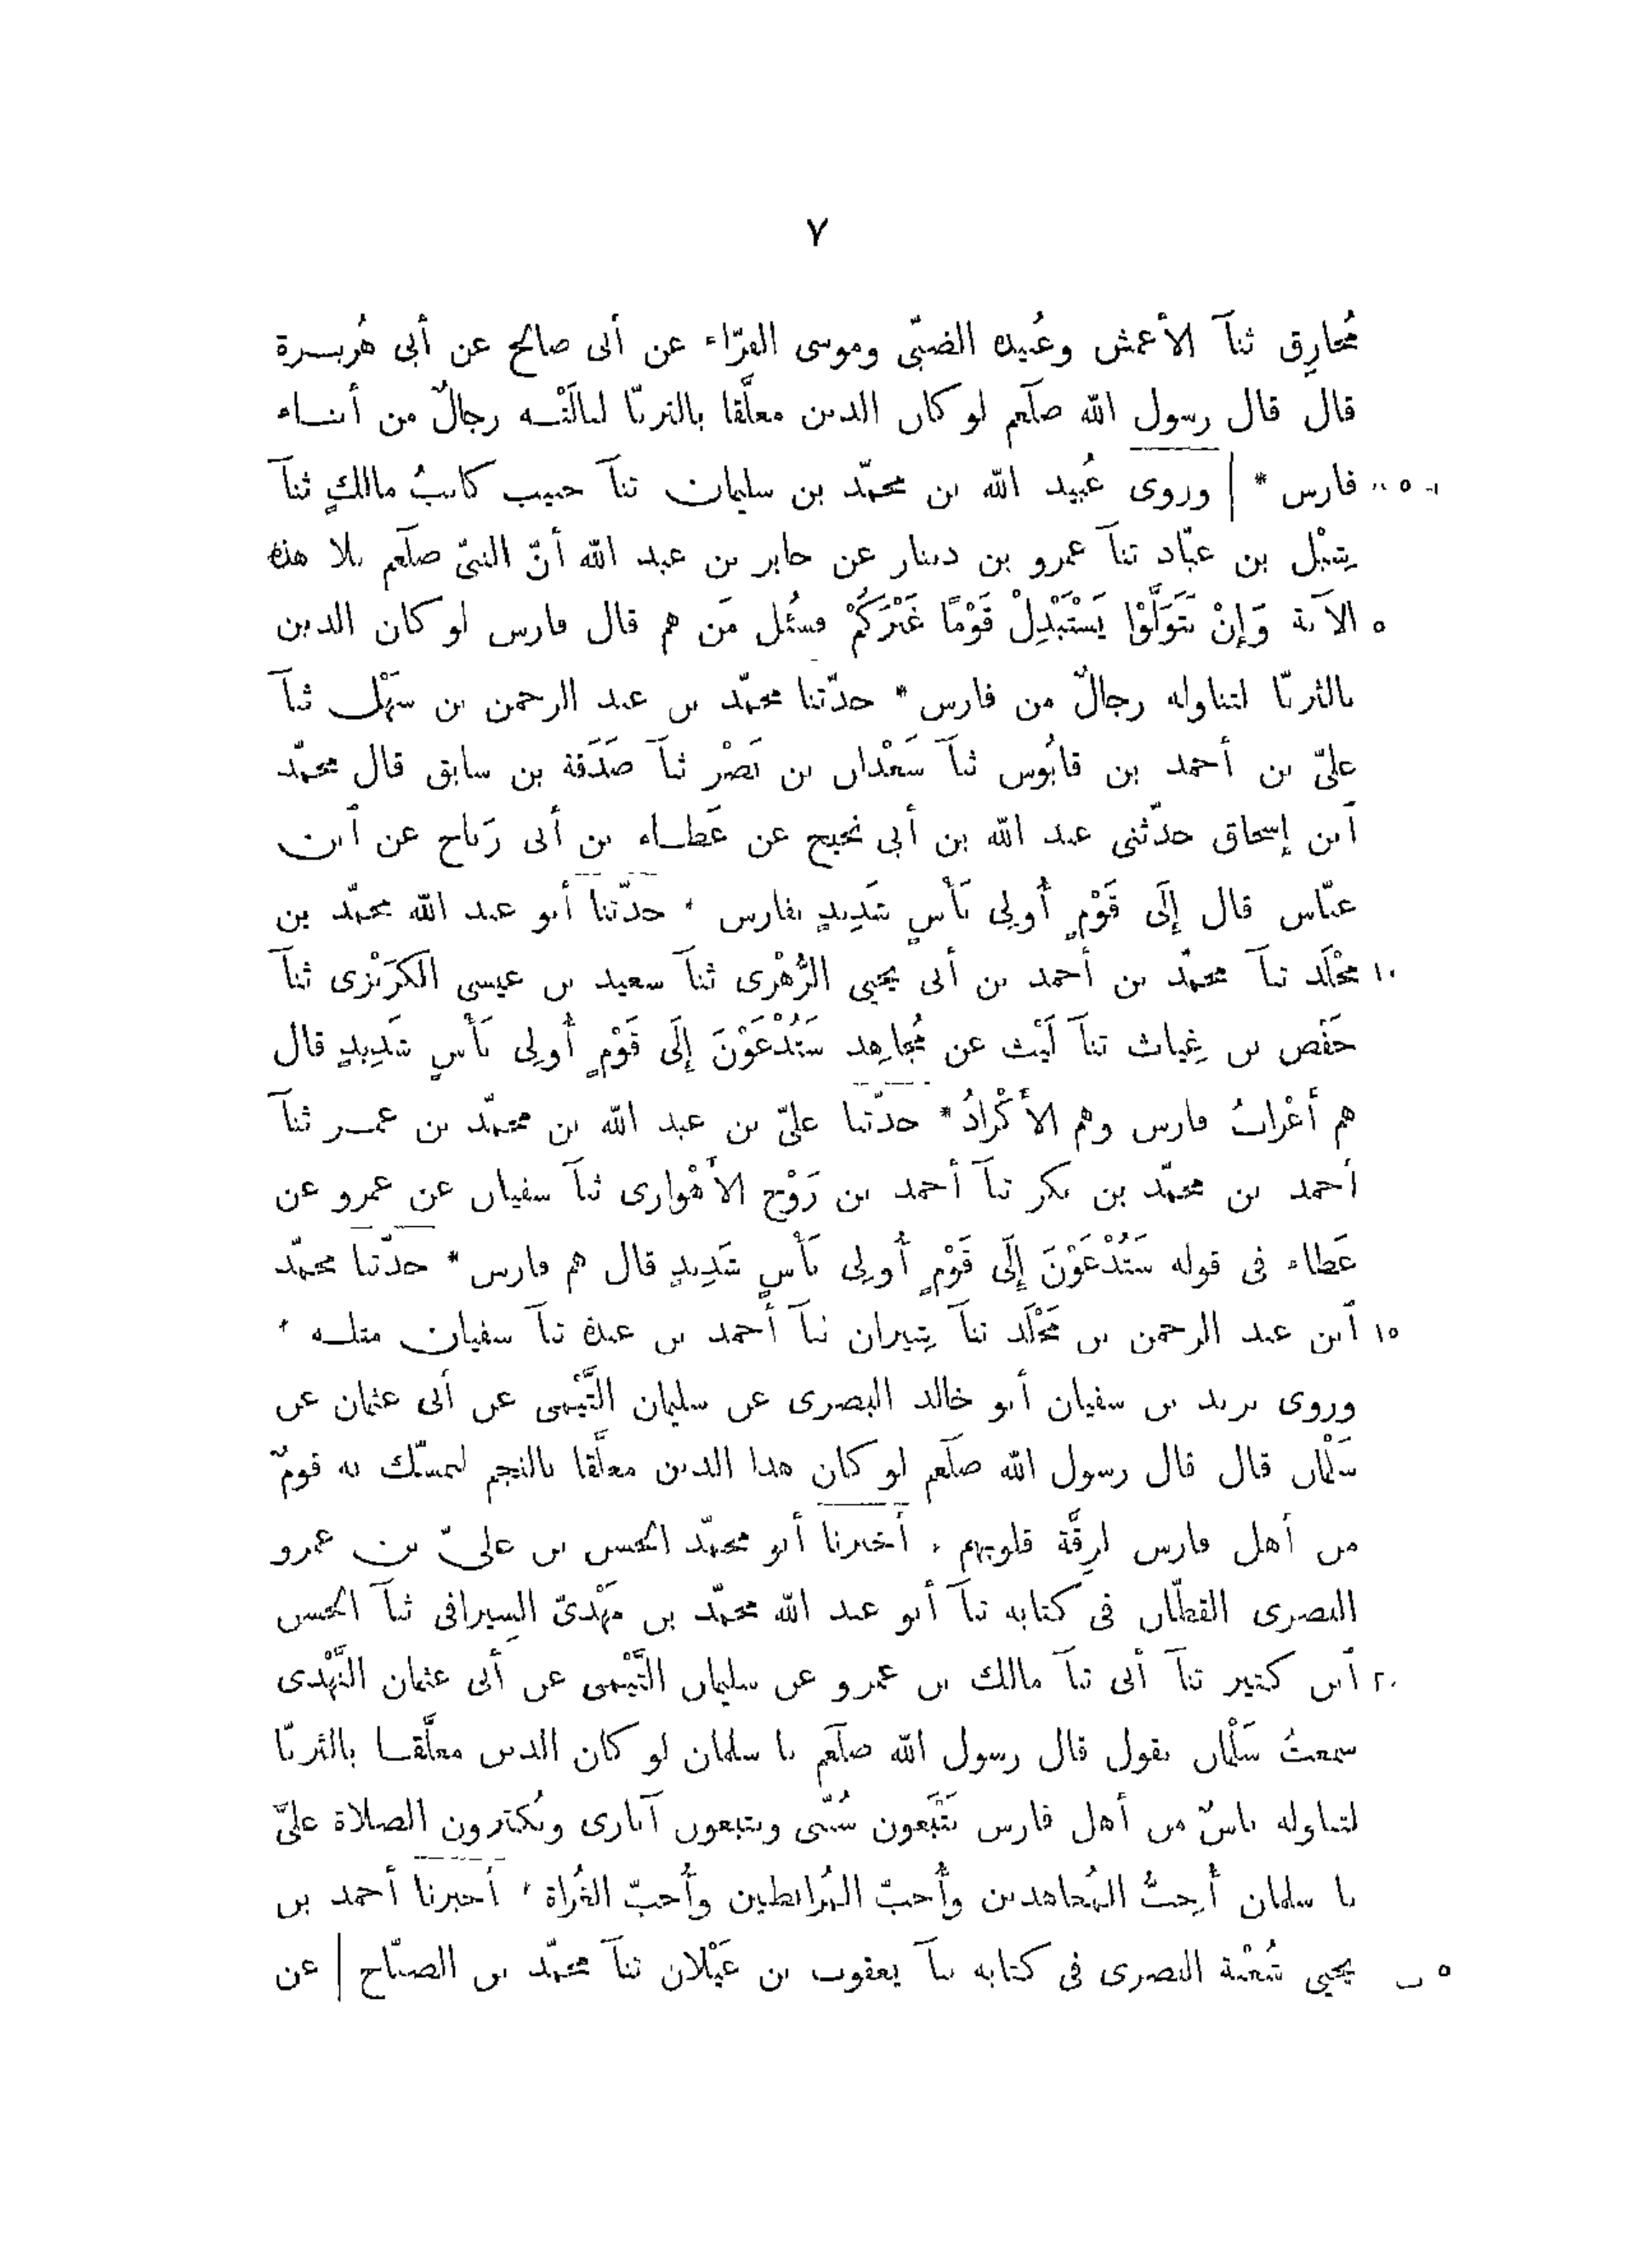 ٧
مُحارِق ثنآ الأعمش وعُبيدة الضبّى وموسى الفرّاء عن أبى صالح عن أبى هُريـرة
قال قال رسول الله صلّعم لو كان الدين معلَّقا بالثريّا لنالَتْـه رجالٌ من أبنـاء
٥٠٠ فارس * | وروى عُبيد الله بن محمّد بن سليمان ثنآ حبيب كاتبُ مالكٍ ثنآ
شِبْل بن عبّاد ثنآ عمرو بن دينار عن جابر بن عبد الله أنّ النبىّ صلّعم تلا هذه
٥ الآية وَإِنْ تَتَوَلَّوْا يَسْتَبْدِلْ قَوْمًا غَيْرَكُمْ فسُئل مَن هم قال فارس لو كان الدين
بالثريّا لتناوله رجالٌ من فارس * حدّثنا محمّد بن عبد الرحمن بن سَهْل ثنآ
علىّ بن أحمد بن قابُوس ثنآ سَعْدان بن نَصْر ثنآ صَدَقة بن سابق قال محمّد
آبن إسحاق حدّثنى عبد الله بن أبى نجيح عن عَطـاء بن أبى رَباح عن آبن
عبّاس قال إِلَى قَوْمٍ أُولِى بَأْسٍ شَدِيدٍ بفارس * حدّثنا أبو عبد الله محمّد بن
١٠ مَخْلَد ثنآ محمّد بن أحمد بن أبى يحيى الزُّهْرى ثنآ سعيد بن عيسى الكَرَيْزى ثنآ
حَفْص بن غِياث ثنآ لَيْث عن مُجاهِد سَتُدْعَوْنَ إِلَى قَوْمٍ أُولِى بَأْسٍ شَدِيدٍ قال
هم أَعْرابُ فارس وهم الأَكْرادُ * حدّثنا علىّ بن عبد الله بن محمّد بن عمـر ثنآ
أحمد بن محمّد بن بكر ثنآ أحمد بن رَوْح الأَهْوازى ثنآ سفيان عن عمرو عن
عَطاء فى قوله سَتُدْعَوْنَ إِلَى قَوْمٍ أُولِى بَأْسٍ شَدِيدٍ قال هم فارس * حدّثنا محمّد
١٥ آبن عبد الرحمن بن مَخْلَد ثنآ شِيران ثنآ أحمد بن عبدة ثنآ سفيان مثلـه *
وروى يزيد بن سفيان أبو خالد البصرى عن سليمان التَّيْمى عن أبى عثمان عن
سَلْمان قال قال رسول الله صلّعم لو كان هذا الدين معلَّقا بالنجم لتمسّك به قومٌ
من أهل فارس لرِقَّة قلوبهم * أخبرنا أبو محمّد الحسن بن علىّ بن عمرو
البصرى القطّان فى كتابه ثنآ أبو عبد الله محمّد بن مَهْدىّ السِيرافى ثنآ الحسن
٢٠ آبن كثير ثنآ أبى ثنآ مالك بن عمرو عن سليمان التَّيْمى عن أبى عثمان النَّهْدى
سمعتُ سَلْمان يقول قال رسول الله صلّعم يا سلمان لو كان الدين معلَّقـا بالثريّا
لتناوله ناسٌ من أهل فارس يَتَّبعون سُنّتى ويتبعون آثارى ويُكثرون الصلاة علىّ
يا سلمان أُحِبُّ المُجاهدين وأُحبّ المُرابطين وأُحبّ الغُزاة * أخبرنا أحمد بن
٥ ب يحيى شُعْبة البصرى فى كتابه ثنآ يعقوب بن غَيْلان ثنآ محمّد بن الصبّاح | عن